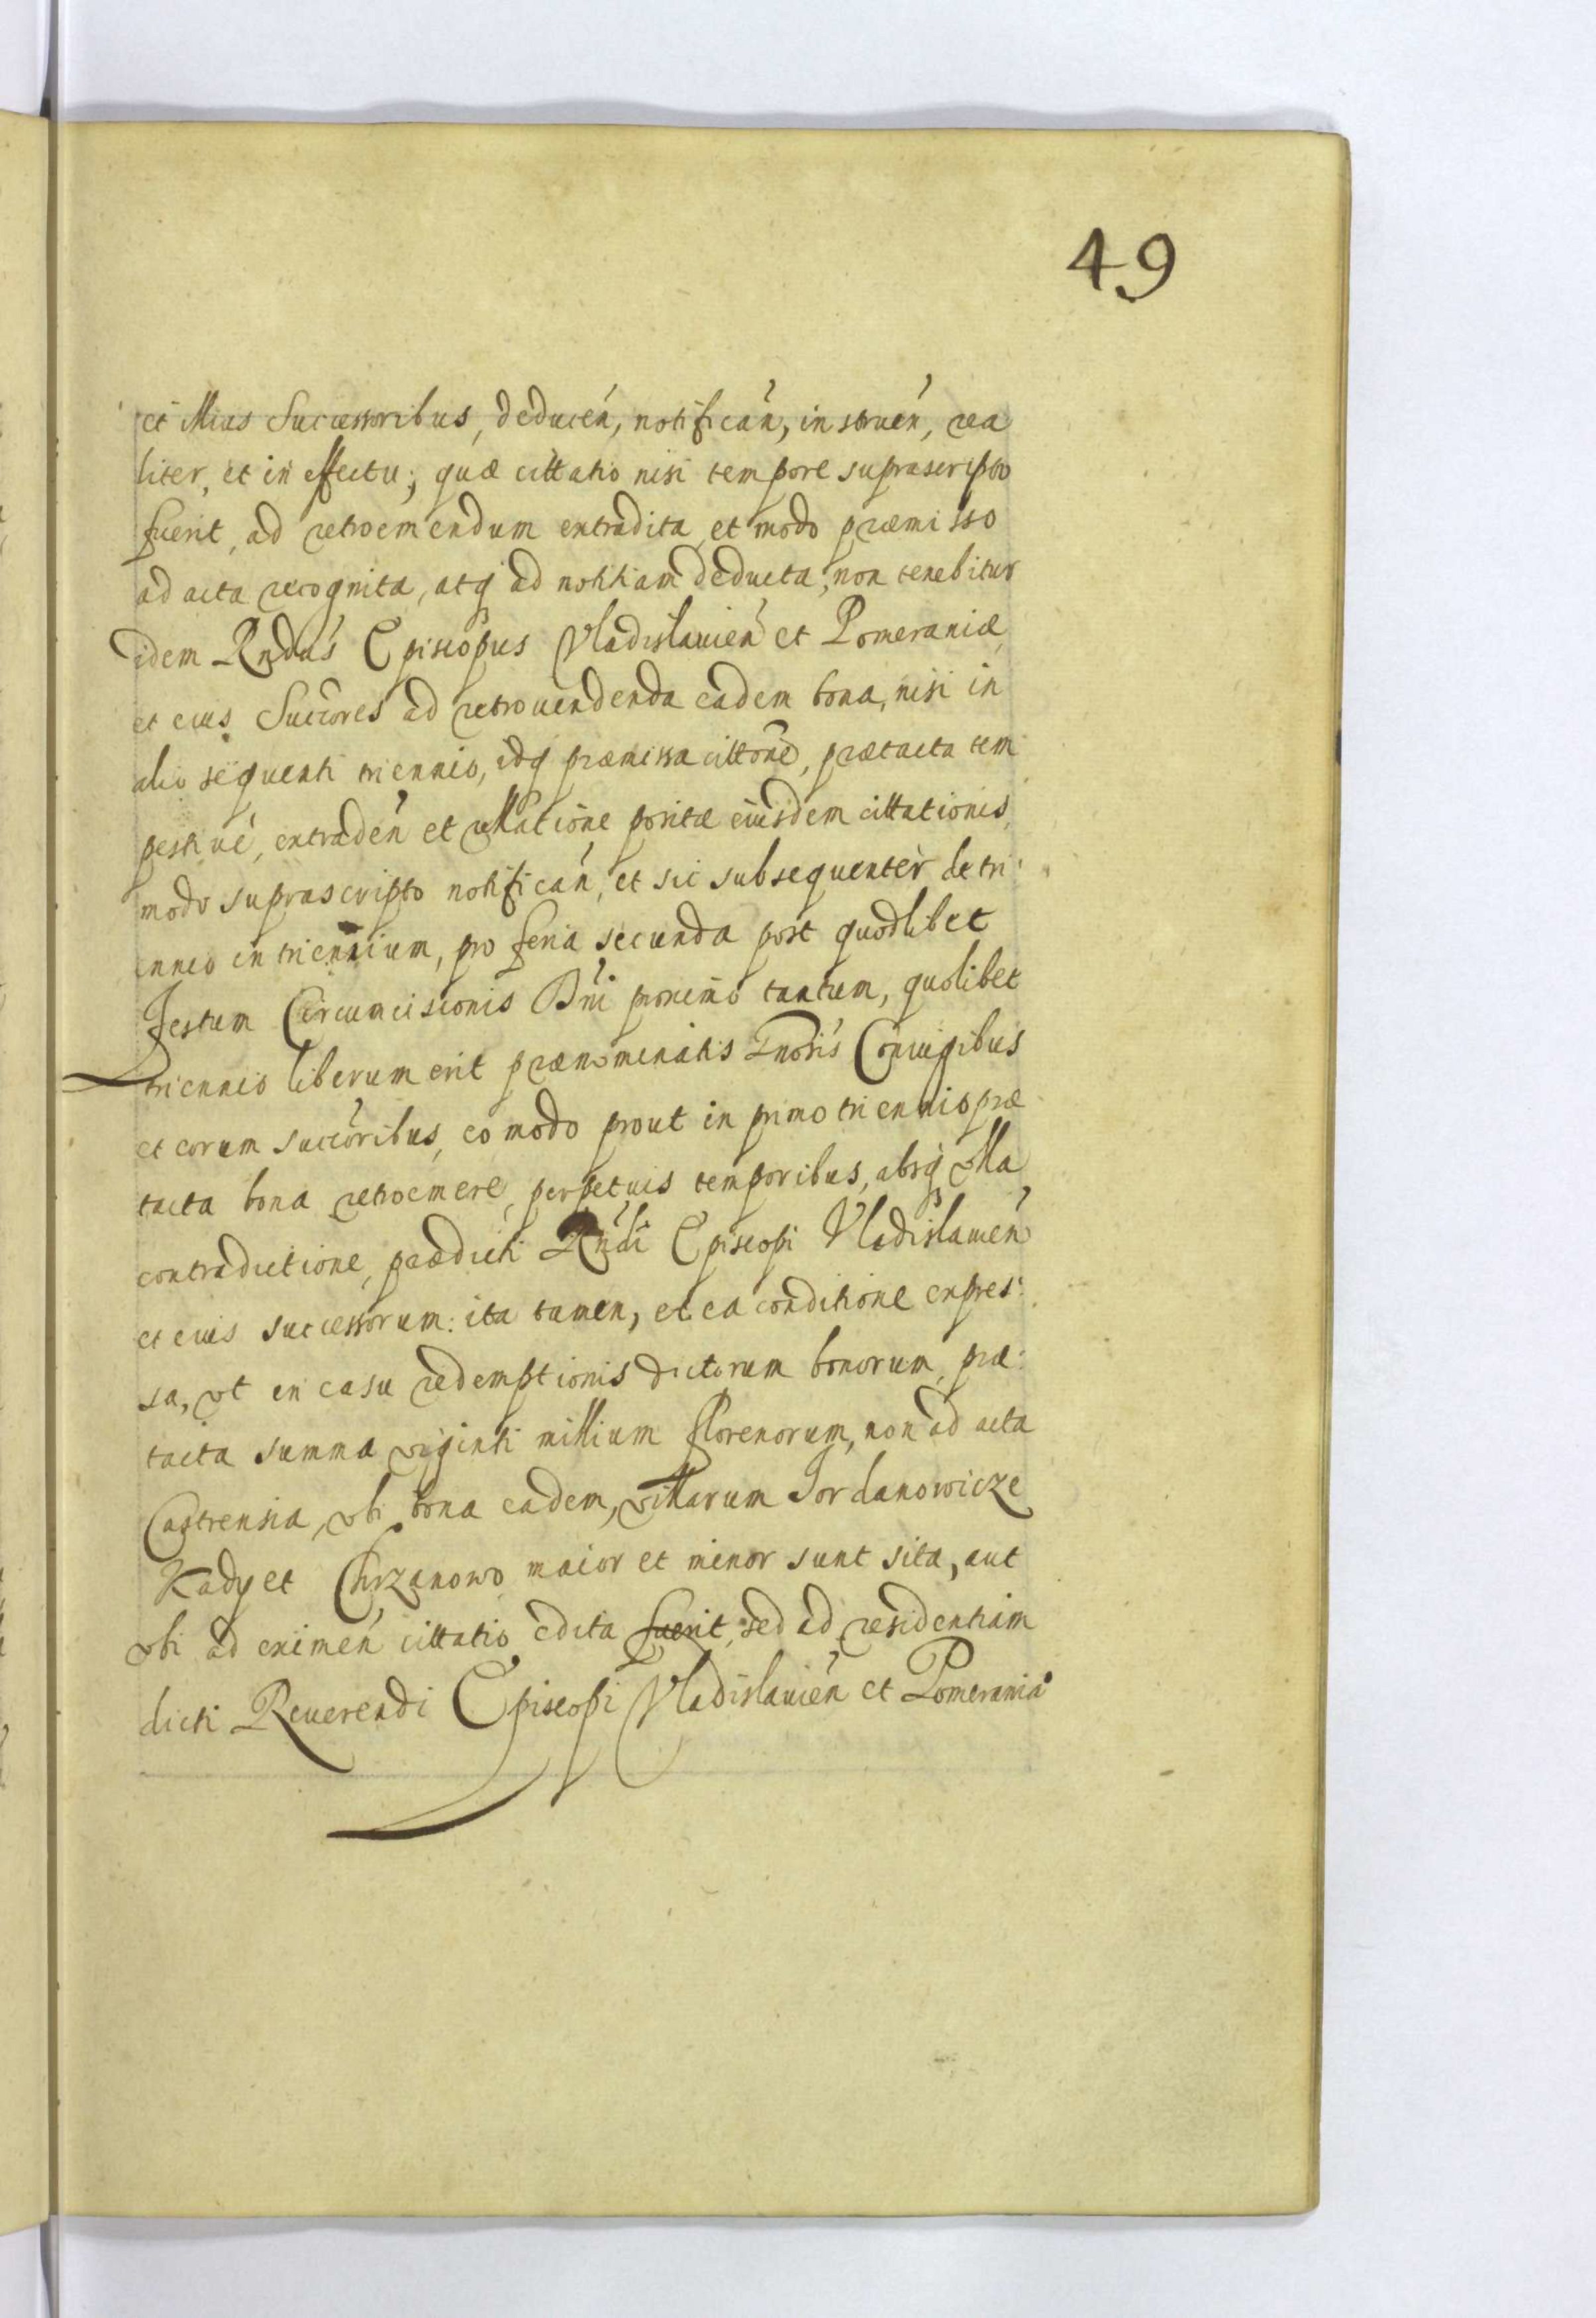 49
et illius Successoribus, deducen̄, notifican̄, instruen̄, rea
liter, et in effectu; quæ cittatio nisi tempore suprascripto
fuerit, ad retroemendum extradita, et modo præmisso
ad acta recognita, atq; ad notitiam deducta, non tenebitur
idem Rndus Episcopus Vladislauien̄ et Pomeraniæ
et eius Succores ad retrouendenda eadem bona, nisi in
alio sequenti triennio, idq; præmissa cittone, prætacta tem
pestiue, extraden̄ et rellatione positæ eiusdem cittationis,
modo suprascripto notifican̄, et sic subsequenter de tri
ennio in triennium, pro feria secunda post quodlibet
Festum Circumcisionis Dni proximo tantum, quolibet
triennio liberum erit prænominatis Gnosis Coniugibus
et eorum succoribus, eo modo prout in primo triennio præ
tacta bona retroemere, perpetuis temporibus, absq; vlla
contradictione, prædicti Rndi Episcopi Vladislauien̄
et eius successorum: ita tamen, et ea conditione expres:
sa, vt in casu redemptionis dictorum bonorum, præ:
tacta summa viginti millium florenorum, non ad acta
Castrensia, vbi bona eadem, villarum Jordanowicze
Kady et Chrzanowo maior et minor sunt sita, aut
vbi ad eximen̄ cittatio edita fuerit, sed ad residentiam
dicti Reuerendi Episcopi Vladislauien̄ et Pomerania